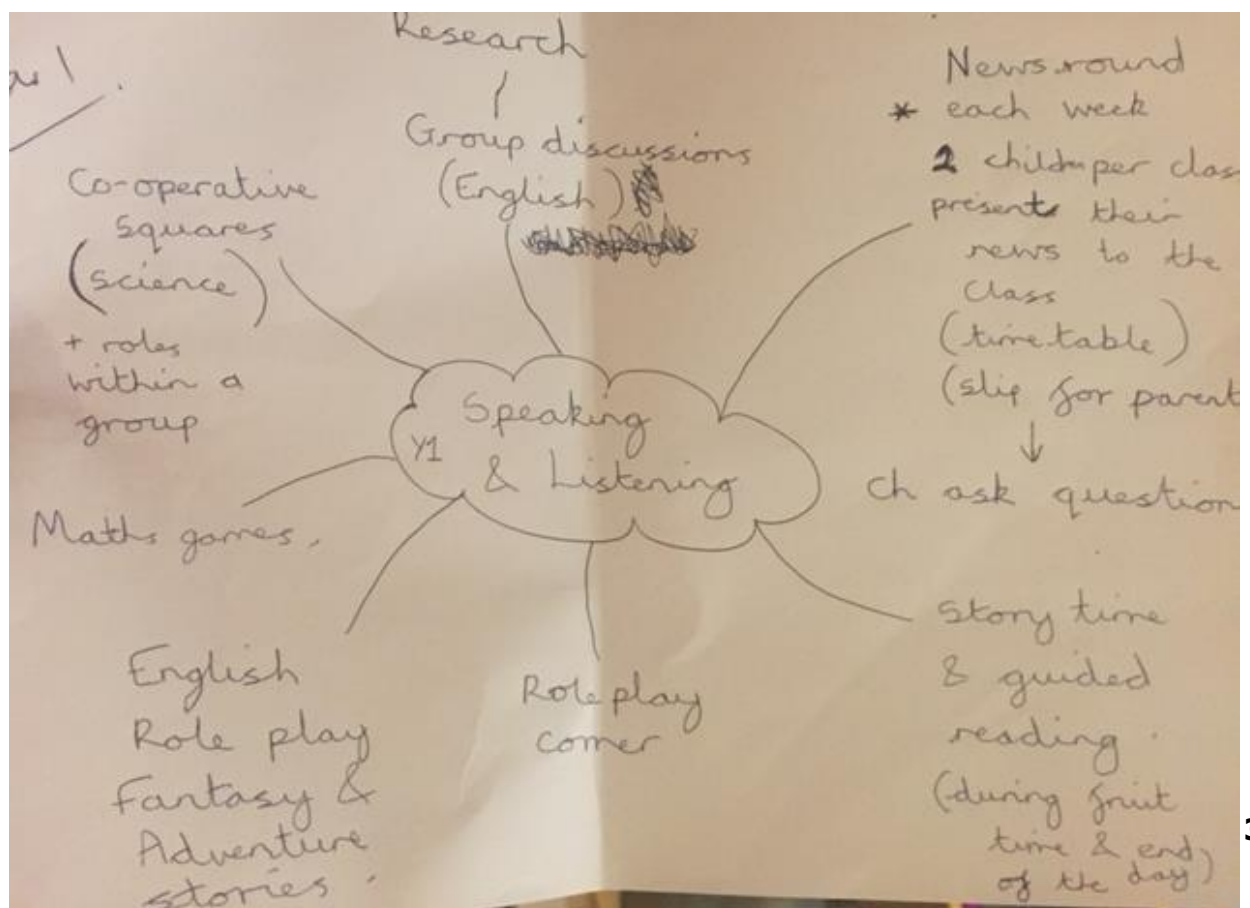 Research
Group discussions
(English)
Co-operative
squares
(science)
+ roles
within a
group
News round
* each week
2 children per class
present their
news to the
class
(timetable)
(slip for parent
↓
ch ask question
Y1
Speaking
& Listening
Maths games.
English
Role play
Fantasy &
Adventure
stories.
Role play
corner
Story time
& guided
reading.
(during fruit
time & end
of the day)